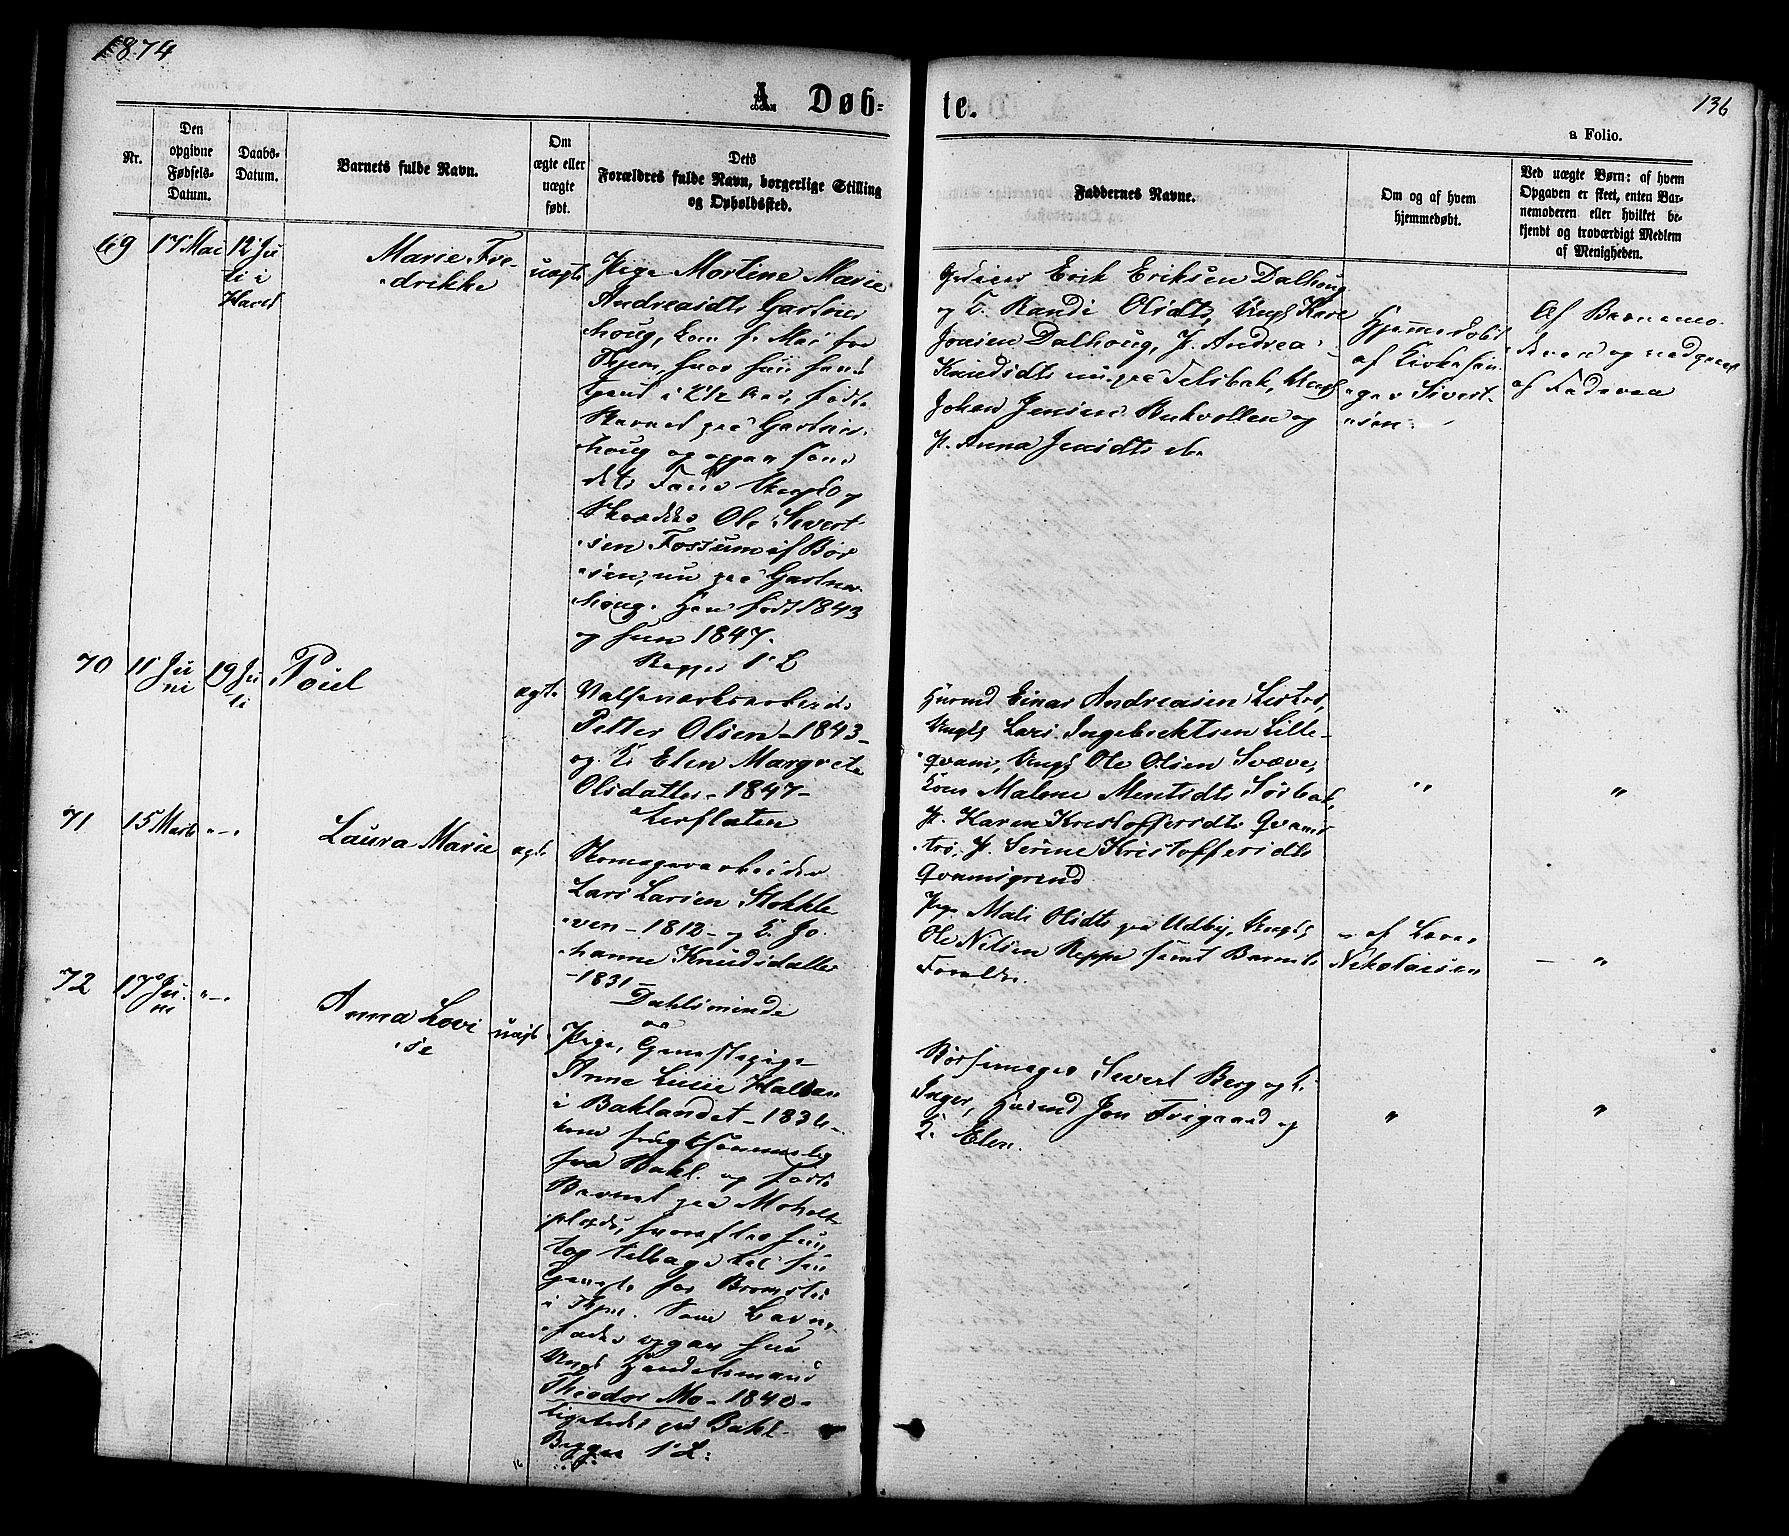 1874
136
A. Døb-
te.
a Folio.
Nr.
Den
opgivne
Fødsels-
Datum.
Daabs-
Datum.
Barnets fulde Navn.
Om
ægte eller
uægte
født.
Dets
Forældres fulde Navn, borgerlige Stilling
og Opholdssted.
Faddernes Navne.
Om og af hvem
hjemmedøbt.
Ved uægte Børn: af hvem
Opgaven er skeet, enten Bar-
nemoderen eller hvilket be-
kjendt og troværdigt Medlem
af Menigheden.
69
17 Mai
12 Ju
li i
Marie Fre-
drikke
uægte
Pige Mortine Marie
Andreasdtr Gartner
houg, kom fr Mai fra
Thjem, hvor hun havd
tjent i 2 1/2 Aar, fødte
Barnet paa Gartner-
houg og opgav som
dets Fader Ungk og
Skrædder Ole Sivert
sen Fossum af Bør
sen, nu paa Gartner
houg. Han født 1843
og hun 1847.
Begges 1' L
Erik Eriksen Dalhoug
og K. Randi Olsdtr, Ungk
Jonsen Dalhoug, P. Andrea
Knudsdtr paa Telsbak, Ungk
Johan Jensen Bukvollen og
P. Anna Jensdtr
Hjemmedøbt
af Kirkesan
ger Sivert
sen.
Af Barnemo
deren og vedgaaet
af Faderen
70
11 Ju
ni
19 Ju
li
Poul
ægte
Valseværksarbeider
Petter Olsen - 1843 -
og K. Elen Margrete
Olsdatter - 1847 -
Leerfloten
Husmd Einar Andreasen
Ungk Lars Ingebrektsen Lille-
qvam, Ungk Ole Olsen Svæve,
Kone Malene Mentsdtr Sørbak,
P. Karen Kristoffersdtr Qvams
P. Serine Kristoffersdtr
Qvamsgrind
"
"
71
15 Marts
" - "
Laura Marie
ægte
Stomagerarbeider
Lars Larsen Stokkle
ven - 1812 - og K. Jo
hanne Knudsdatter
- 1831 -
Dahlsminde
Pige Mali Olsdtr paa Udby, Ungk
Ole Nilsen Reppe samt Barnets
Forældre.
- af Lærer
Nikolaisen
- "
72
17 Ju
ni
" - "
Anna Lovi
se
uægte
Pige, Tjenestepige
Anne Lusie Halsan
i Baklandet - 1834 -
kom frugtsommelig
fra Bakl. og fødte
Barnet paa Moholt
plads, hvorefter hun
tog tilbage til sin
Tjeneste for
i Thjm. Som Barne
fader opgav hun
Ungk Handelsmand
Theodor Mo - 1840 -
ligeledes paa Bakl.
Begges 1' L:
Børsemager Sivert Berg og K.
Inger, Husmd Jon Trigaard og
K. Elen.
"
"